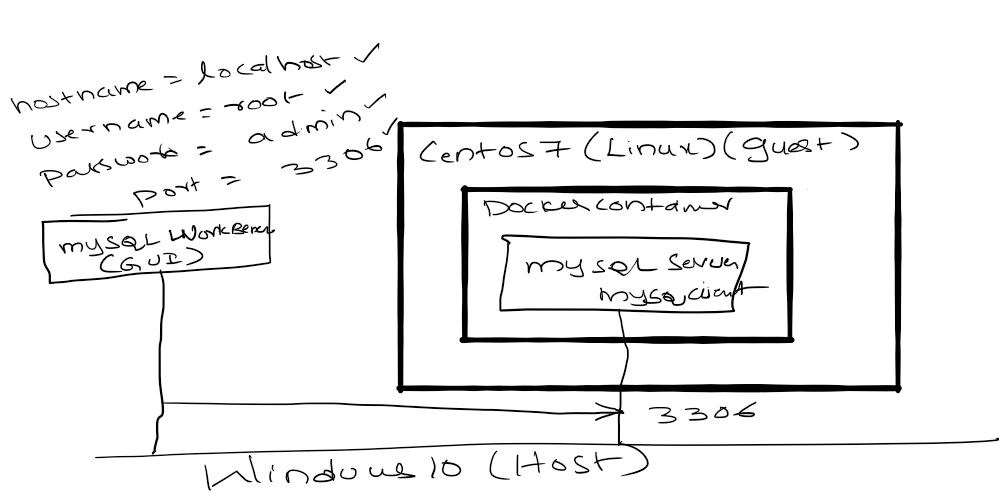 hostname = localhost ✓
username = root ✓
password = admin ✓
port = 3306 ✓
mySQL WorkBench
(GUI)
CentOS 7 (Linux) (guest)
Docker container
mySQL Server
mysql client
3306
Windows 10 (Host)